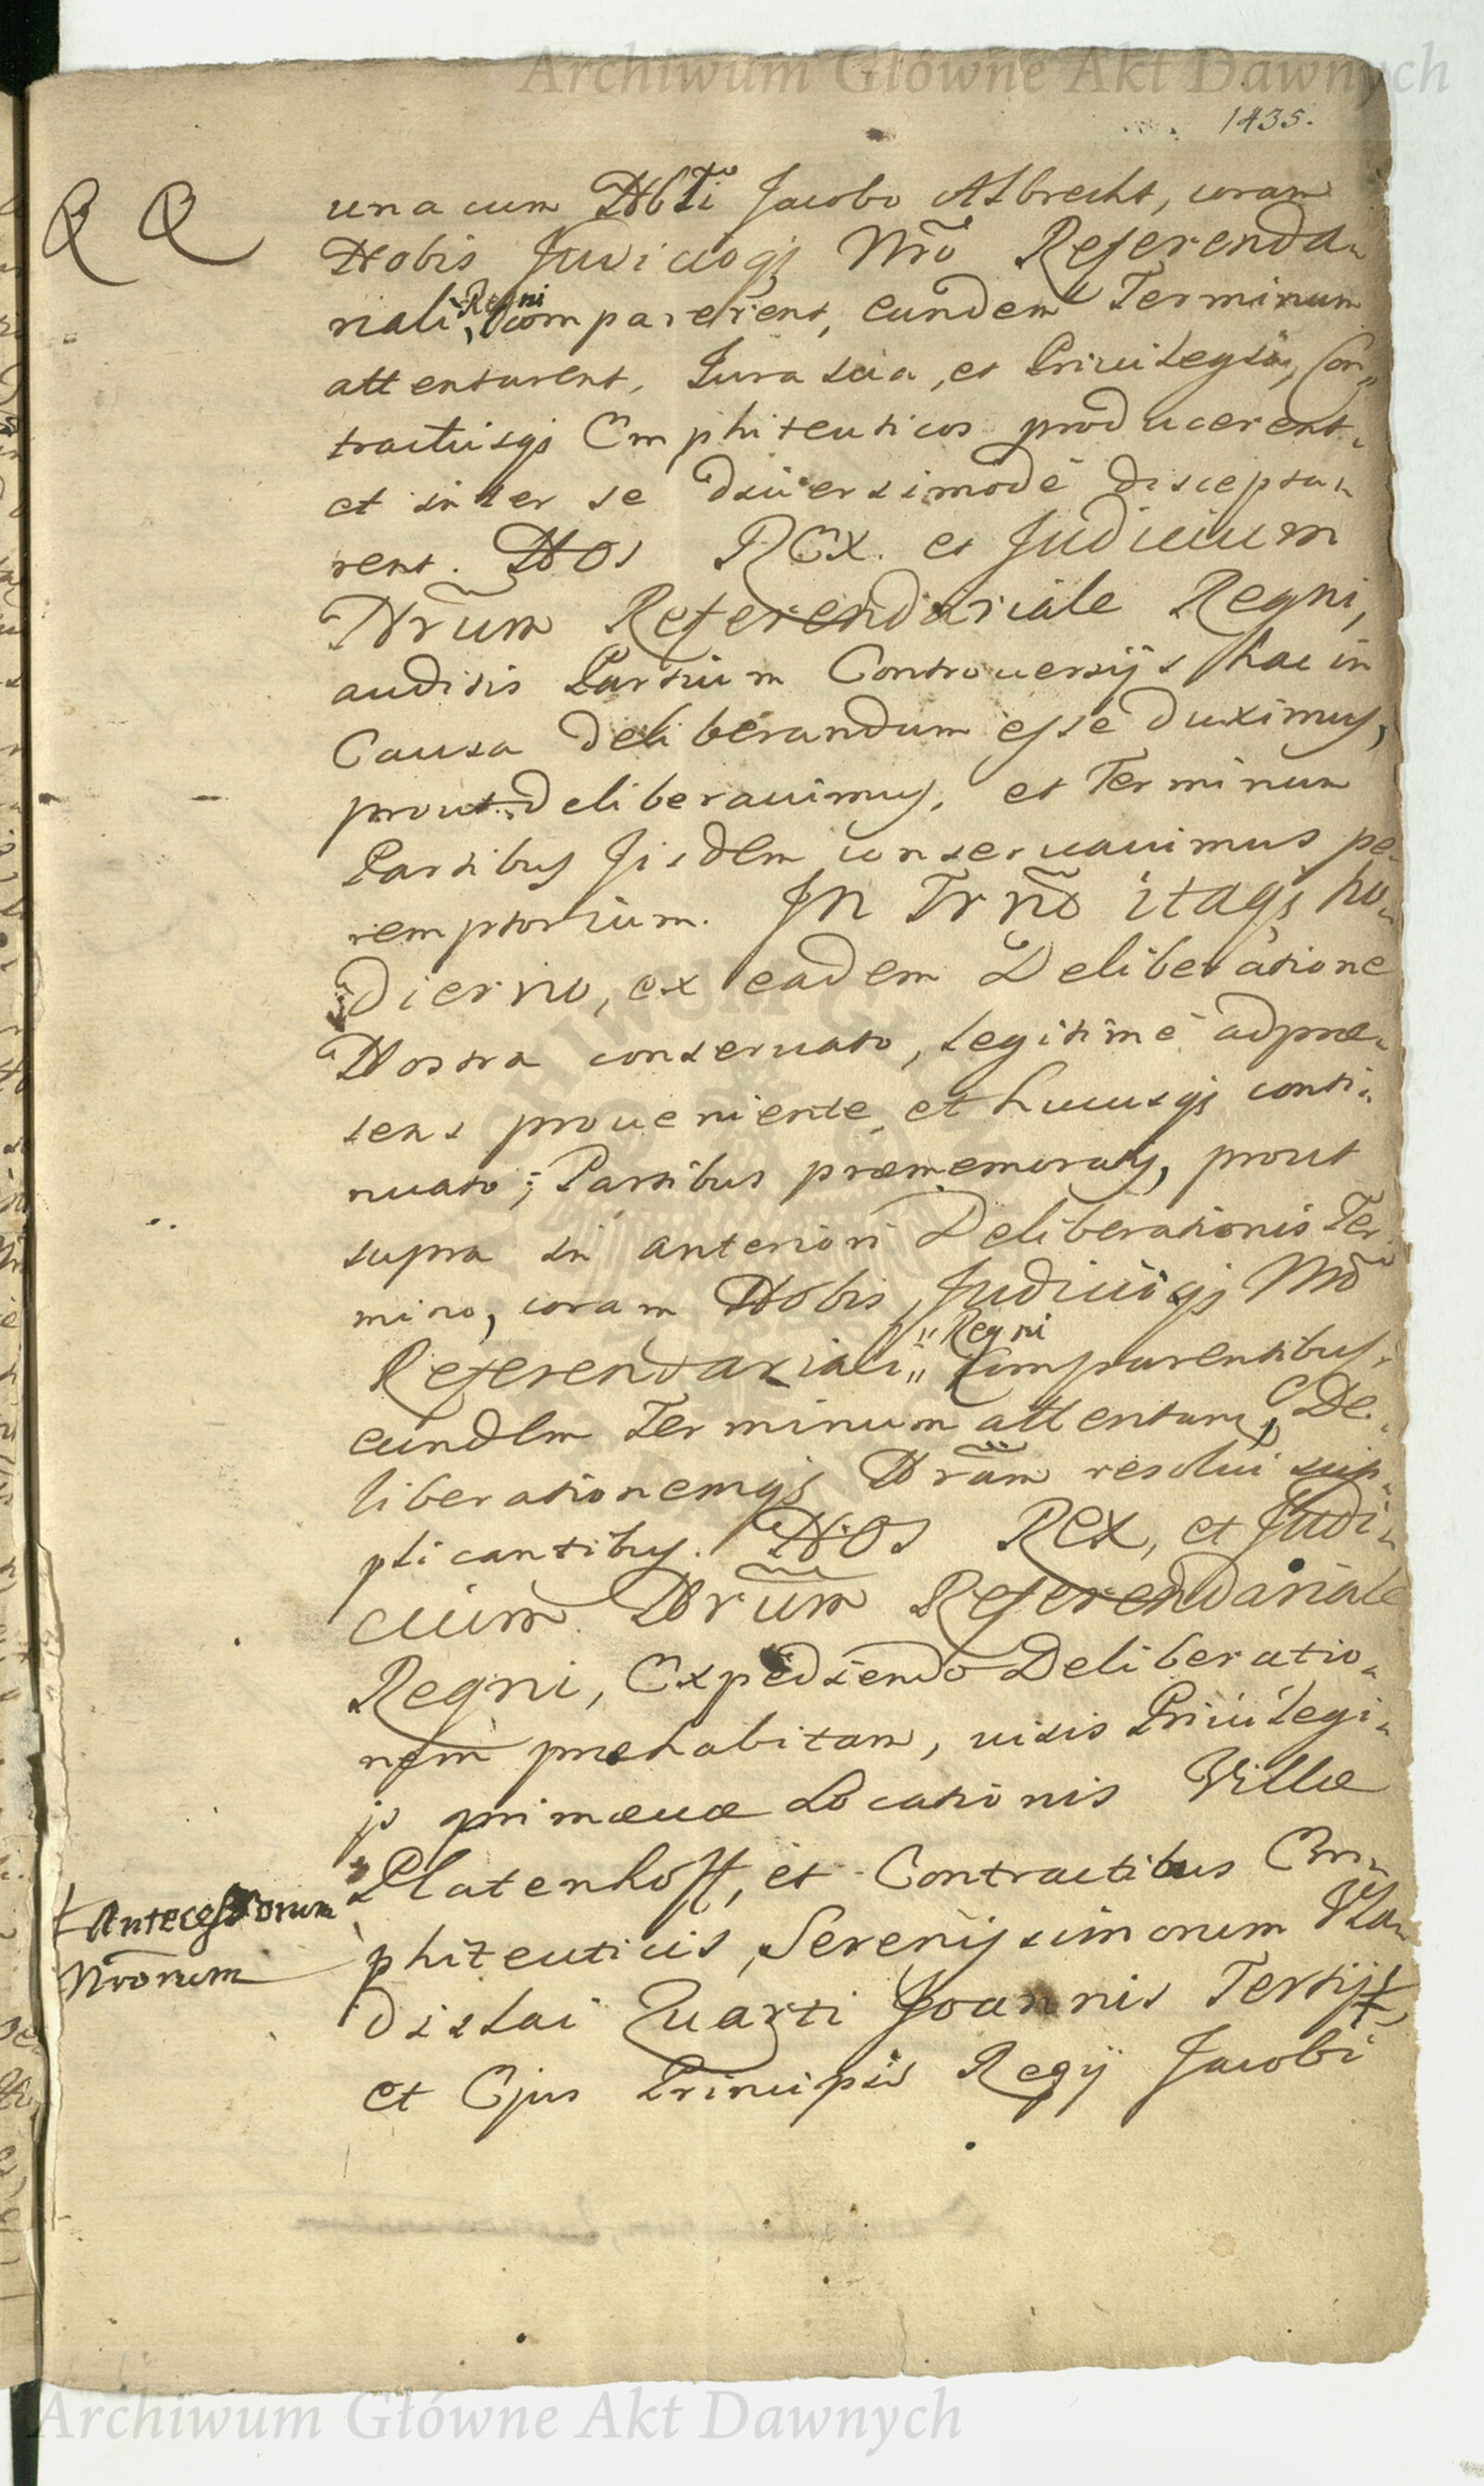 Archiwum Główne Akt Dawnych
1435.
Q Q
una cum Nbli Jacobo Albrecht, coram
Nobis Judicioqz Nrõ Referenda„
riali „Regni comparerent, eundem Terminum
attentarent, Jura sua, et Priuilegia, Con„
tractusqz Emphiteuticos producerent„
et inter se diuersimodè discepta„
rent. NOS REX. et Judicium
Nrũm Referendariale Regni,
auditis Partium Controuersijs hac in
Causa deliberandum esse duximus,
prout deliberauimus, et Terminum
Partibus Jisdem conseruauimus pe„
remptorium. In Trñõ itaqz ho„
dierno, ex eadem Deliberatione
Nostra conseruato, legitimè ad præ„
sens proueniente, et hucusqz conti„
nuato; Partibus præmemoratis, prout
supra in anteriori Deliberationis Ter„
mino, coram Nobis, Judicioqz Nrõ
Referendariali „Regni Comparentibus,
eundem Terminum attentan, De„
liberationemqz Nrãm resolui sup„
plicantibus. NOS REX, et Judi„
cium Nrũm Referendariale
Regni, Expediendo Deliberatio„
nem præhabitam, uisis Priuilegi„
js primæuæ Locationis Villæ
Platenhoff, et Contractibus Em„
phiteuticis, Serenissimorum Vla„
dislai Quarti Joannis Tertij ‡
et Ejus Principis Regij Jacobi
‡ Antecessorum
Nrõrum
Archiwum Główne Akt Dawnych